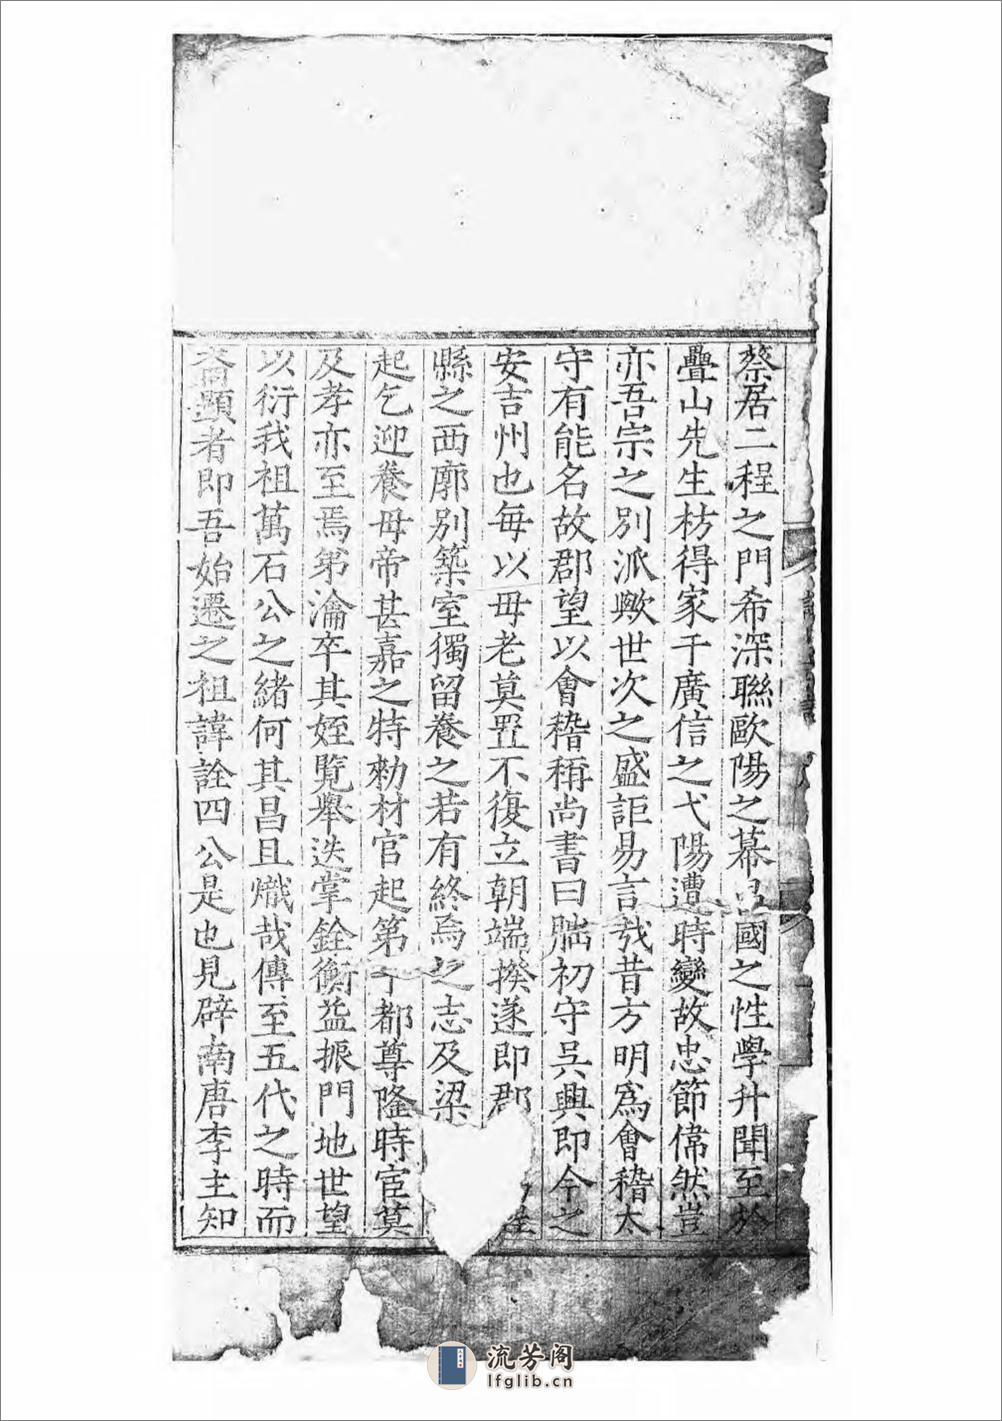 蔡居二程之門希深聯歐陽之幕國之性學升聞至於
疊山先生枋得家于廣信之弋陽遭時變故忠節偉然豈
亦吾宗之別派歟世次之盛詎易言哉昔方明爲會稽太
守有能名故郡望以會稽稱尚書曰朏初守吳興即今之
安吉州也每以母老莫置不復立朝端揆遂即郡
縣之西廓別築室獨留養之若有終焉之志及梁
起乞迎養母帝甚嘉之特勑材官起第于都尊隆時宦莫
及孝亦至焉第瀹卒其姪覽舉迭掌銓衡益振門地世望
以衍我祖萬石公之緒何其昌且熾哉傳至五代之時而
裔顯者即吾始遷之祖諱詮四公是也見辟南唐李主知
流芳阁
lfglib.cn